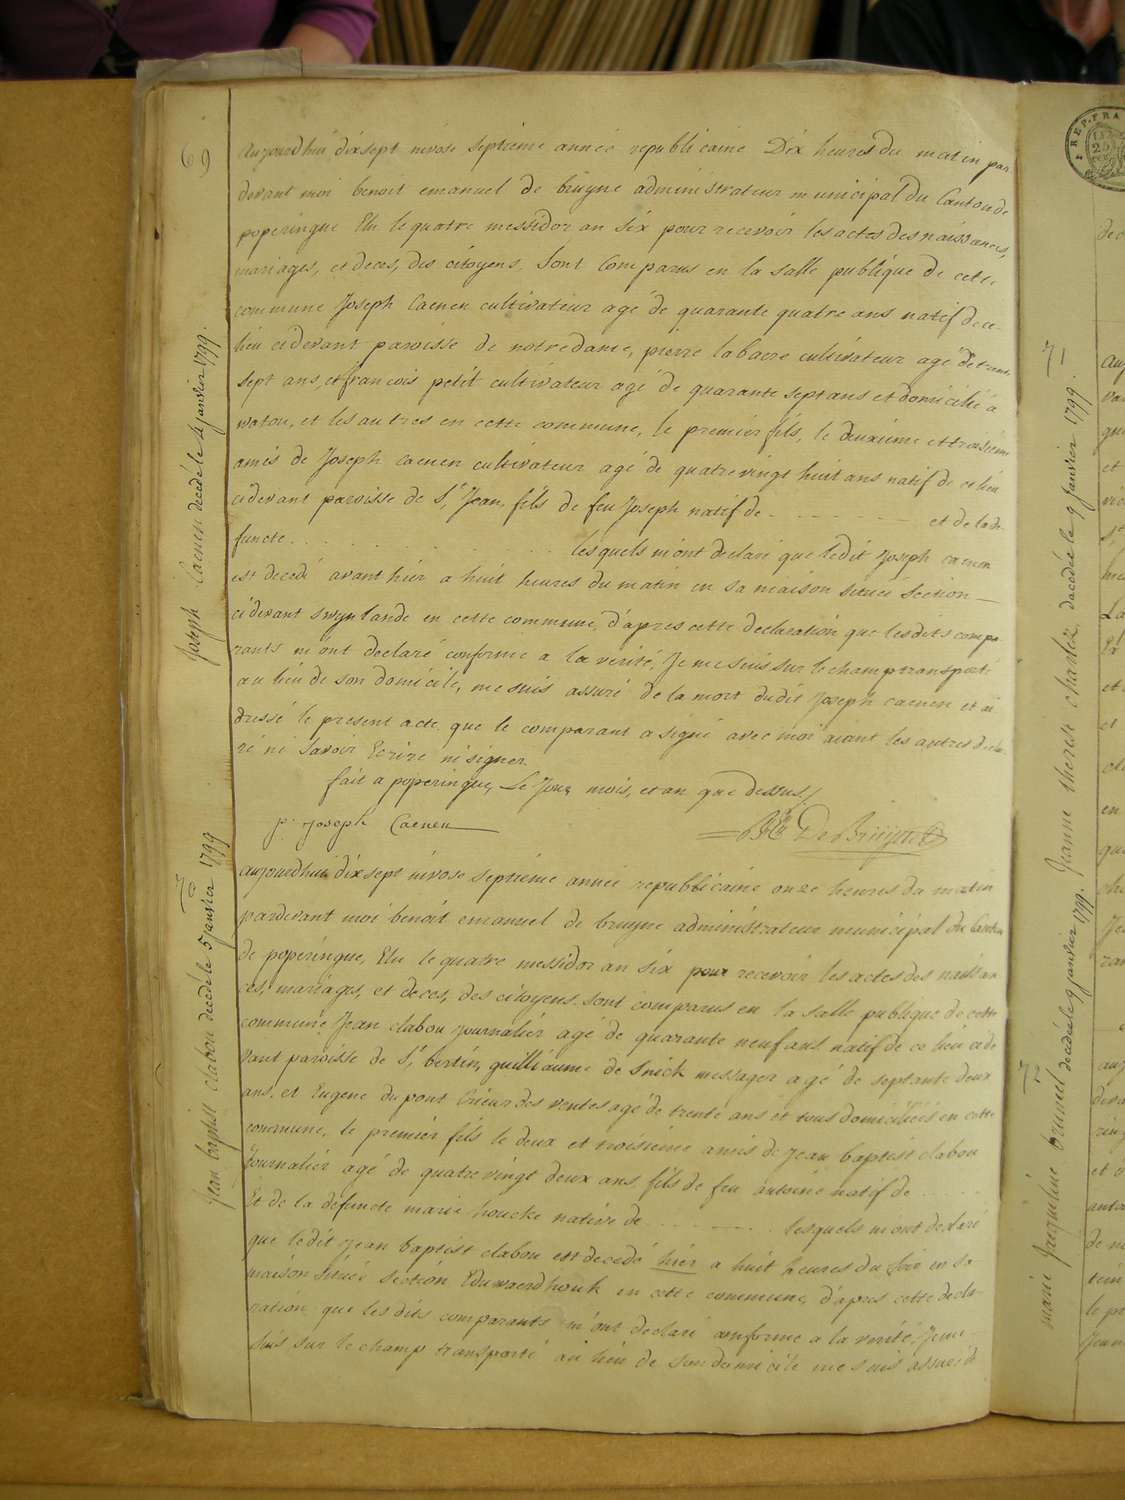 69
aujourdhui dixsept nivose septieme année republicaine Dix heures du matin par
devant moi benoit emanuel de bruyne administrateur municipal du Canton de
poperingue Elu le quatre messidor an six pour recevoir les actes des naissances,
mariages, et deces, des citoyens. sont Comparus en la salle publique de cette
commune Joseph Caenen cultivateur agé de quarante quatre ans natif de ce
lieu cidevant paroisse de notre dame, pierre labaere cultivateur agé de trente
sept ans, et francois petit cultivateur agé de quarante sept ans et domicilié a
watou, et les autres en cette commune, le premier fils, le deuxieme et troisieme
amis de Joseph Caenen cultivateur agé de quatre vingt huit ans natif de ce lieu
cidevant paroisse de St Jean, fils de feu Joseph natif de - - - - - - et de la de
functe - - - - - - - - - - lesquels m'ont declaré que ledit Joseph caenen
est decedé avant hier a huit heures du matin en sa maison situeé section —
cidevant swynlande en cette commune, d'apres cette declaration que lesdits compa
rants m'ont declaré conforme a la verité, Je me suis sur le champ transporté
au lieu de son domicile, me suis assuré de la mort dudit Joseph caenen et ai
dressé le present acte que le comparant a signé avec moi aiant les autres decla
ré ni savoir Ecrire ni signer.
fait a poperingue, Le Jour, mois, et an que dessus./
p: Joseph Caenen
De Bruyne
Joseph Caenen decédé le 4 janvier 1799.
70
aujourdhui dixsept nivose septieme année republicaine onze heures du matin
pardevant moi benoit emanuel de bruyne administrateur municipal du Canton
de poperingue, Elu le quatre messidor an six pour recevoir les actes des naissan
ces, mariages, et deces, des citoyens. sont comparus en la salle publique de cette
commune Jean clabou Journalier agé de quarante neuf ans natif de ce lieu cide
vant paroisse de St bertin, guilliaume de Snick messager agé de septante deux
ans, et Eugene dupont Crieur des ventes agé de trente ans et tous domiciliés en cette
commune, le premier fils le deux et troisieme amis de Jean baptist clabou
Journalier agé de quatre vingt deux ans, fils de feu antoine natif de - - - -
Et de la defuncte marie houcke native de - - - - - - lesquels m'ont declaré
que ledit Jean baptist clabou est decedé hier a huit heures du soir en sa
maison situeé section Eduwaerdhouk en cette commune, d'apres cette decla-
ration que lesdits comparants m'ont declaré conforme a la verité, Je me -
suis sur le champ transporté au lieu de son domicile me suis assuré de
Jean baptist clabou decédé le 5 janvier 1799
REP. FRA
25
71
Jeanne therese charlez, decédée le 9 janvier 1799.
72
marie Jacqueline brunel decédée le 9 janvier 1799.